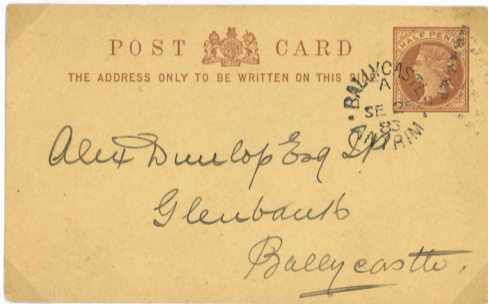 POST CARD
THE ADDRESS ONLY TO BE WRITTEN ON THIS SIDE
HALF PENNY
BALLYCASTLE
A
SE 2
83
ANTRIM
Alex Dunlop Esq
Glenbank
Ballycastle.